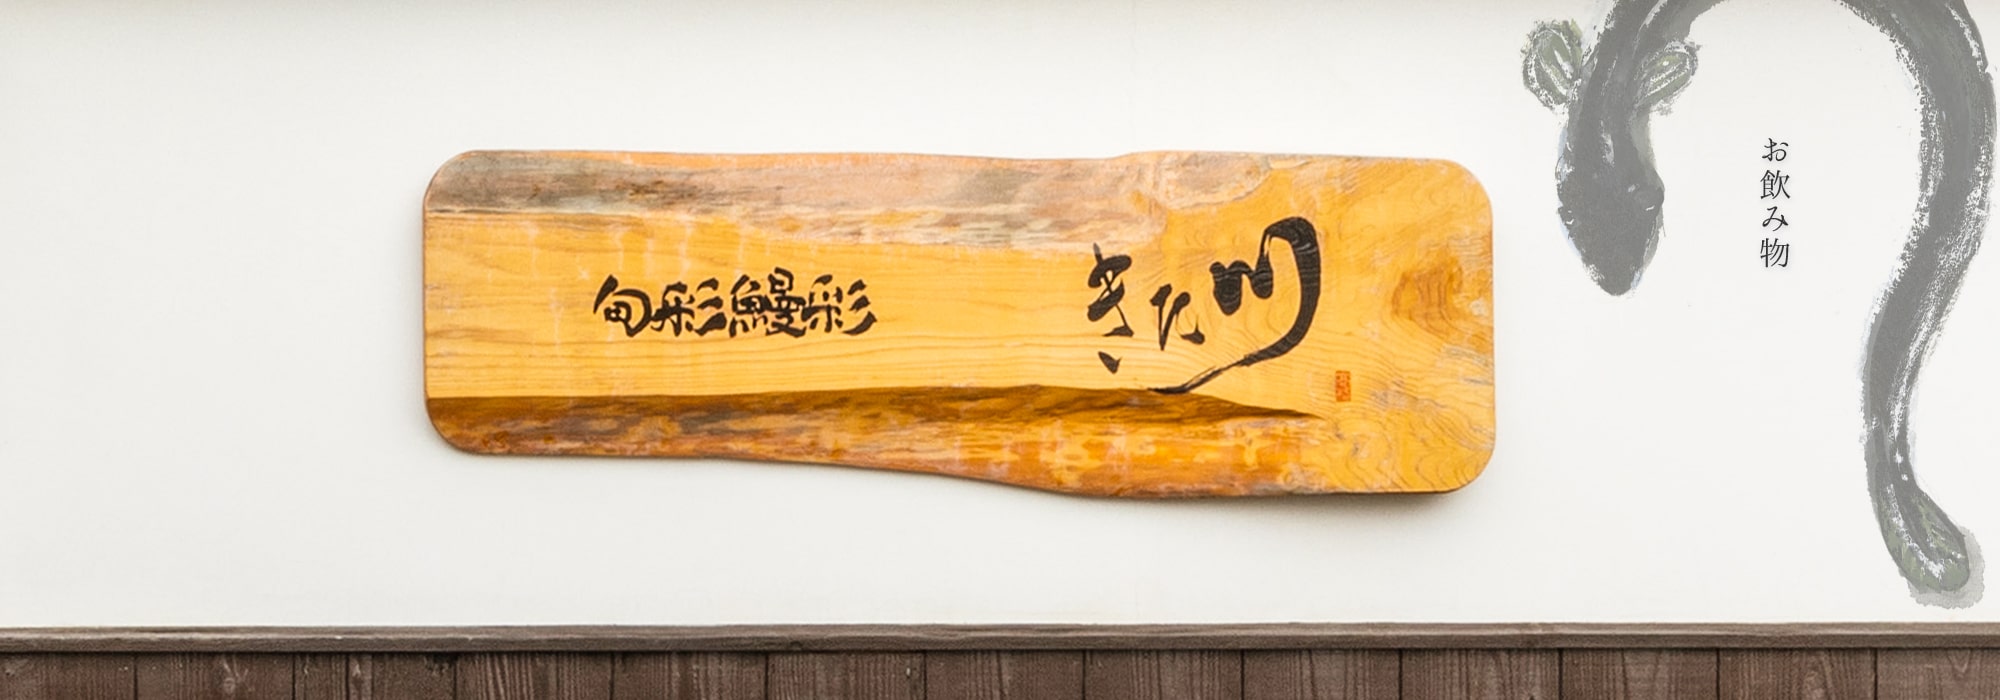 旬彩鰻彩
きた川
お飲み物